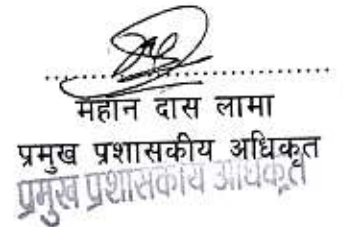 महान दास लामा
प्रमुख प्रशासकीय अधिकृत
प्रमुख प्रशासकीय अधिकृत